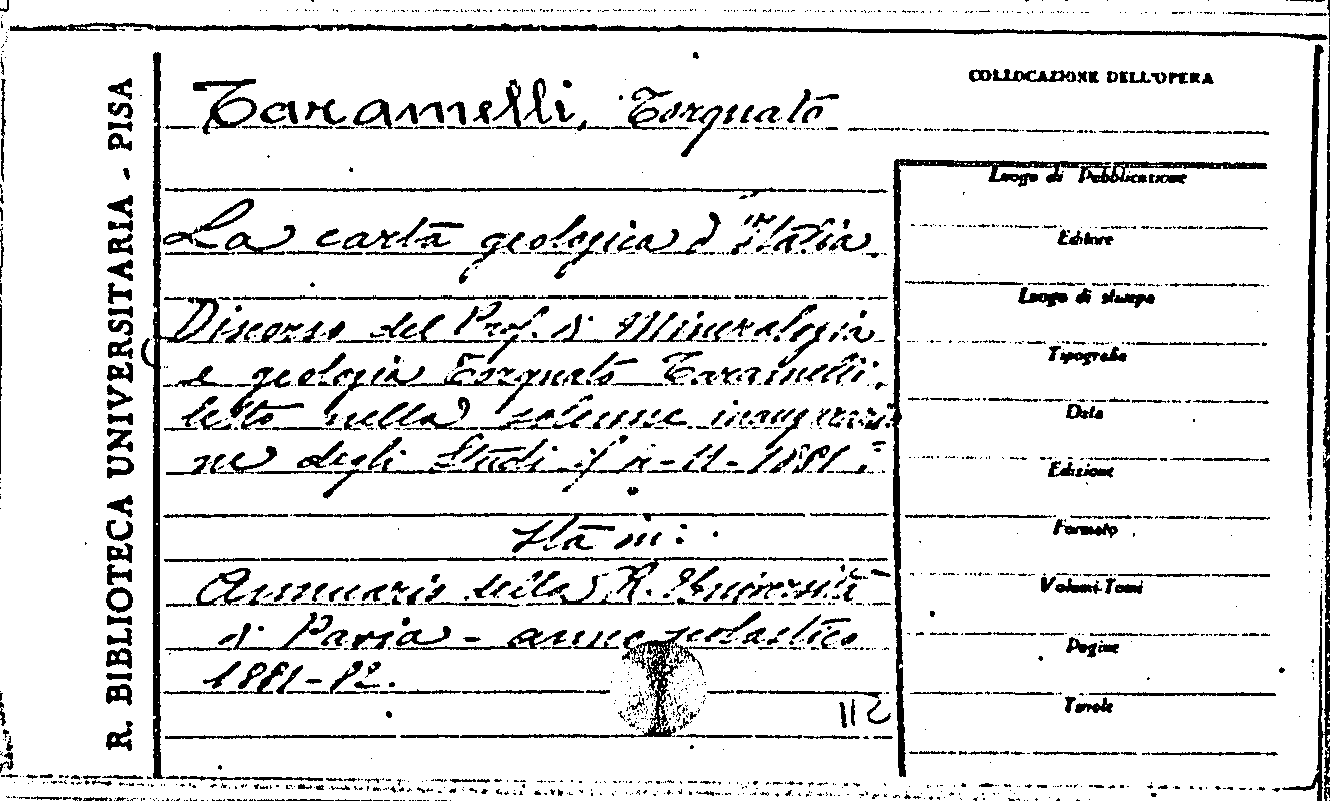 R. BIBLIOTECA UNIVERSITARIA - PISA
COLLOCAZIONE DELL'OPERA
Taramelli, Torquato
La carta geologica d'Italia.
Discorso del Prof. di Mineralogia
e geologia Torquato Taramelli,
letto nella solenne inaugurazio
ne degli Studi
-11-1881.
Sta in:
Annuario della R. Università
di Pavia - anno scolastico
1881-82.
112
Luogo di Pubblicazione
Editore
Luogo di stampa
Tipografia
Data
Edizione
Formato
Volumi-Tomi
Pagine
Tavole